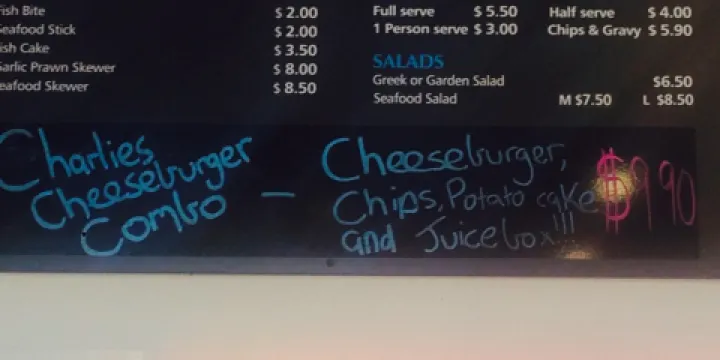 Fish Bite $2.00
Seafood Stick $2.00
Fish Cake $3.50
Garlic Prawn Skewer $8.00
Seafood Skewer $8.50
Full serve $5.50
1 Person serve $3.00
Half serve $4.00
Chips & Gravy $5.90
SALADS
Greek or Garden Salad $6.50
Seafood Salad M $7.50 L $8.50
Charlies
Cheeseburger
Combo
– Cheeseburger,
Chips, Potato cake $9.90
and Juicebox!!!